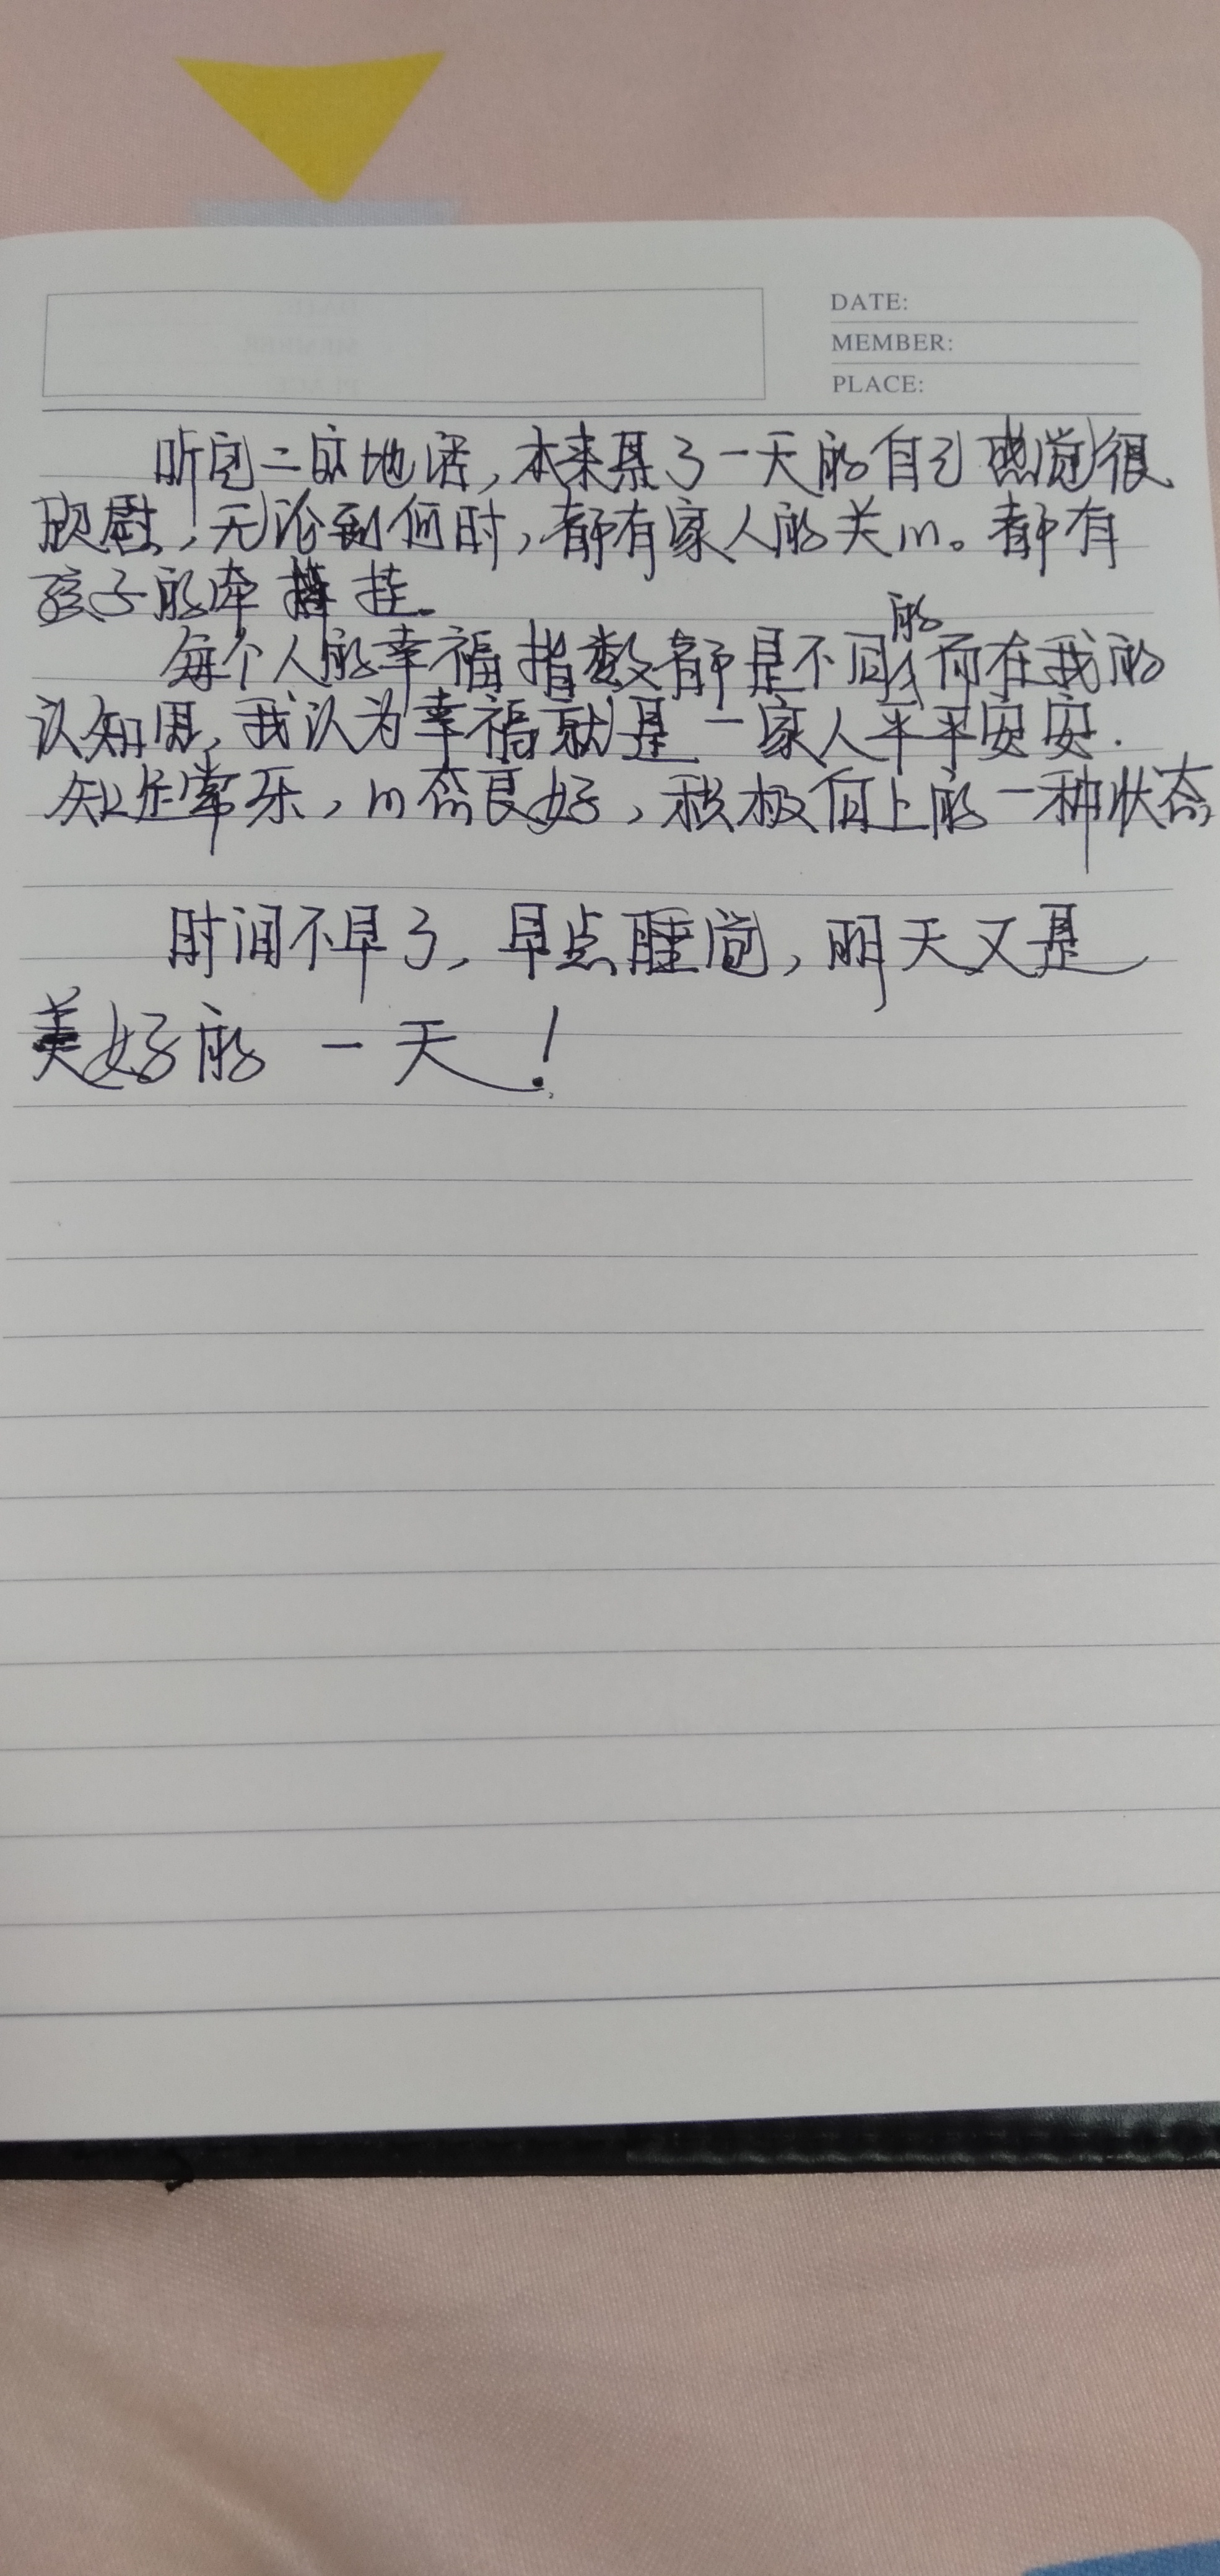 DATE:
MEMBER:
PLACE:
听完二宝地话,本来累了一天的自己感觉很
欣慰,无论到何时,都有家人的关心。都有
孩子的牵挂。
每个人的幸福指数都是不同的,而在我的
认知里,我认为幸福就是一家人平平安安.
知足常乐,心态良好,积极向上的一种状态
时间不早了,早点睡觉,明天又是
美好的一天!